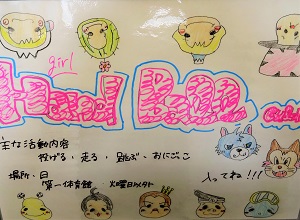 girl
Hand Ball CLUB
主な活動内容
投げる・走る・跳ぶ・おにごっこ
場所・日
第一体育館、火曜日以外
入ってね!!!